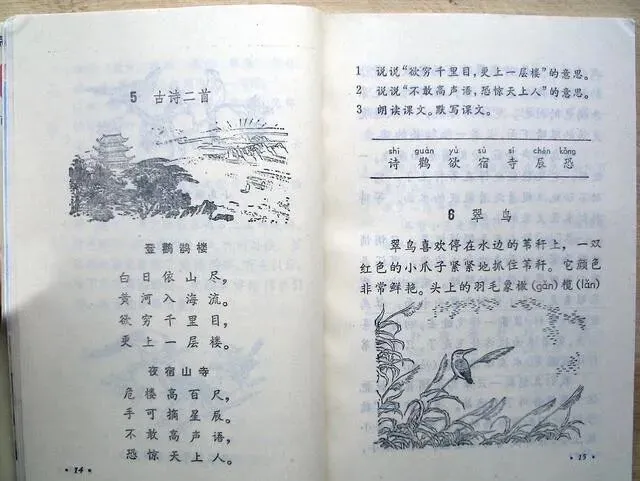 5 古诗二首
登鹳鹊楼
白日依山尽，
黄河入海流。
欲穷千里目，
更上一层楼。
夜宿山寺
危楼高百尺，
手可摘星辰。
不敢高声语，
恐惊天上人。
·14·
1 说说“欲穷千里目，更上一层楼”的意思。
2 说说“不敢高声语，恐惊天上人”的意思。
3 朗读课文。默写课文。
shī guàn yù sù sì chén kǒng
诗 鹳 欲 宿 寺 辰 恐
6 翠鸟
翠鸟喜欢停在水边的苇秆上，一双
红色的小爪子紧紧地抓住苇秆。它颜色
非常鲜艳。头上的羽毛象橄(gǎn)榄(lǎn)
·15·